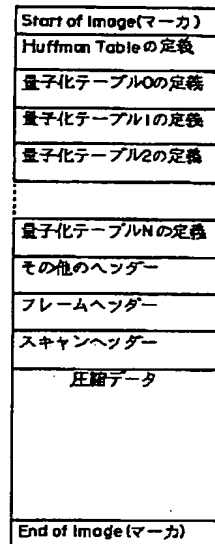 Start of Image(マーカ)
Huffman Tableの定義
量子化テーブル0の定義
量子化テーブル1の定義
量子化テーブル2の定義
量子化テーブルNの定義
その他のヘンダー
フレームヘンダー
スキャンヘッダー
圧縮データ
End of Image(マーカ)